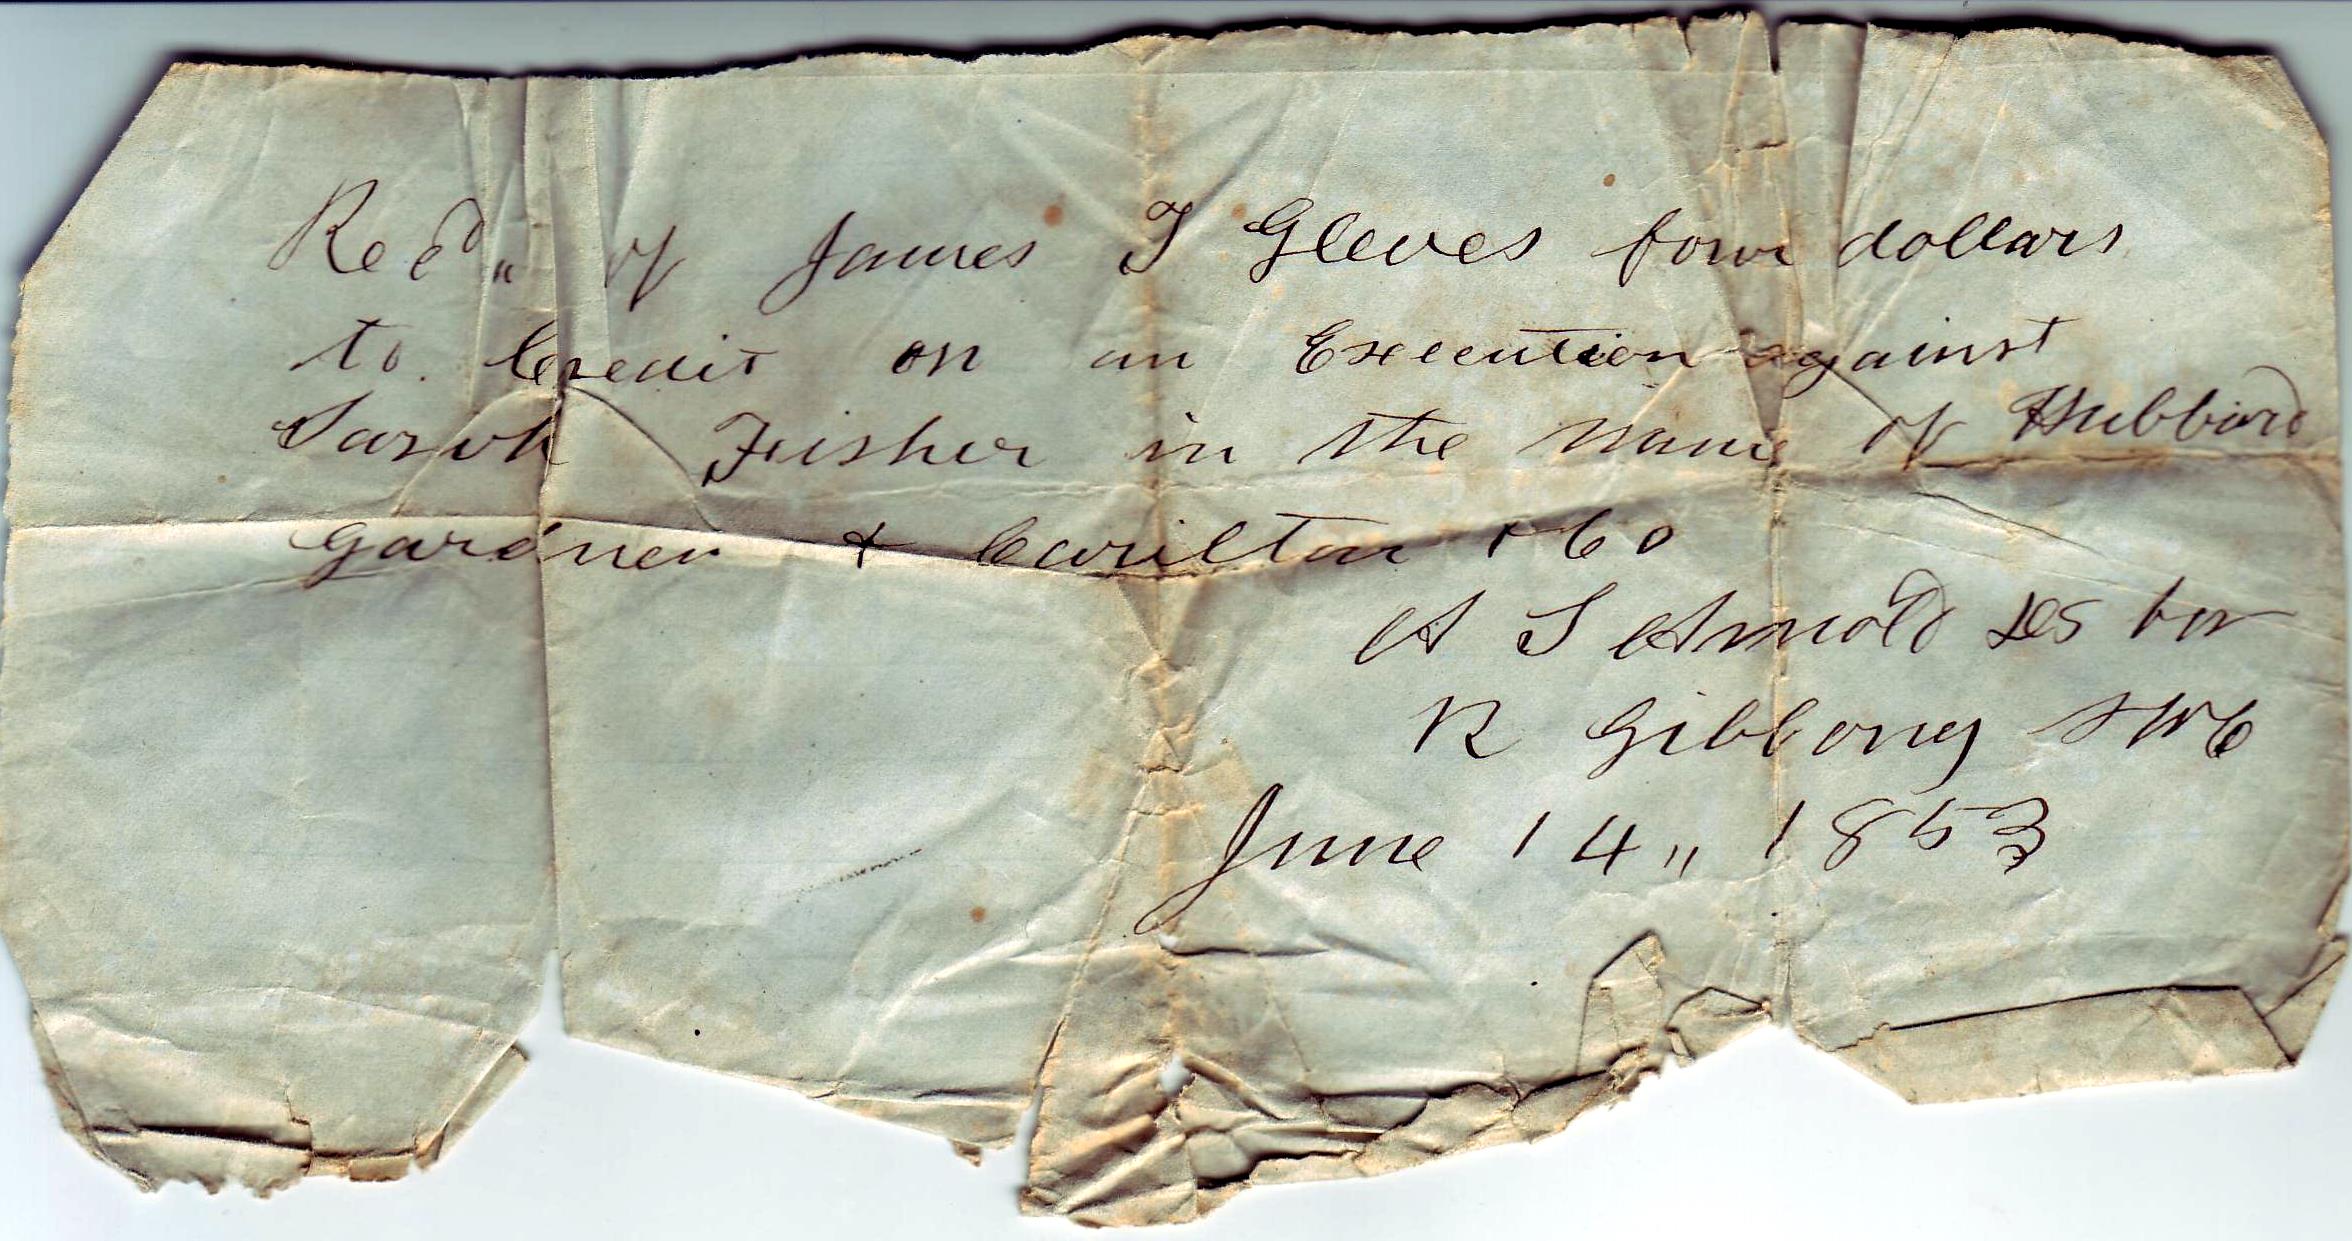 Recd „ of James T Gleves four dollars
to Credit on an Execution against
Sarah Fisher in the name of Hubbard
Gardner & Carilton & Co
A S Arnold DS for
R Gibboney SWC
June 14„ 1853